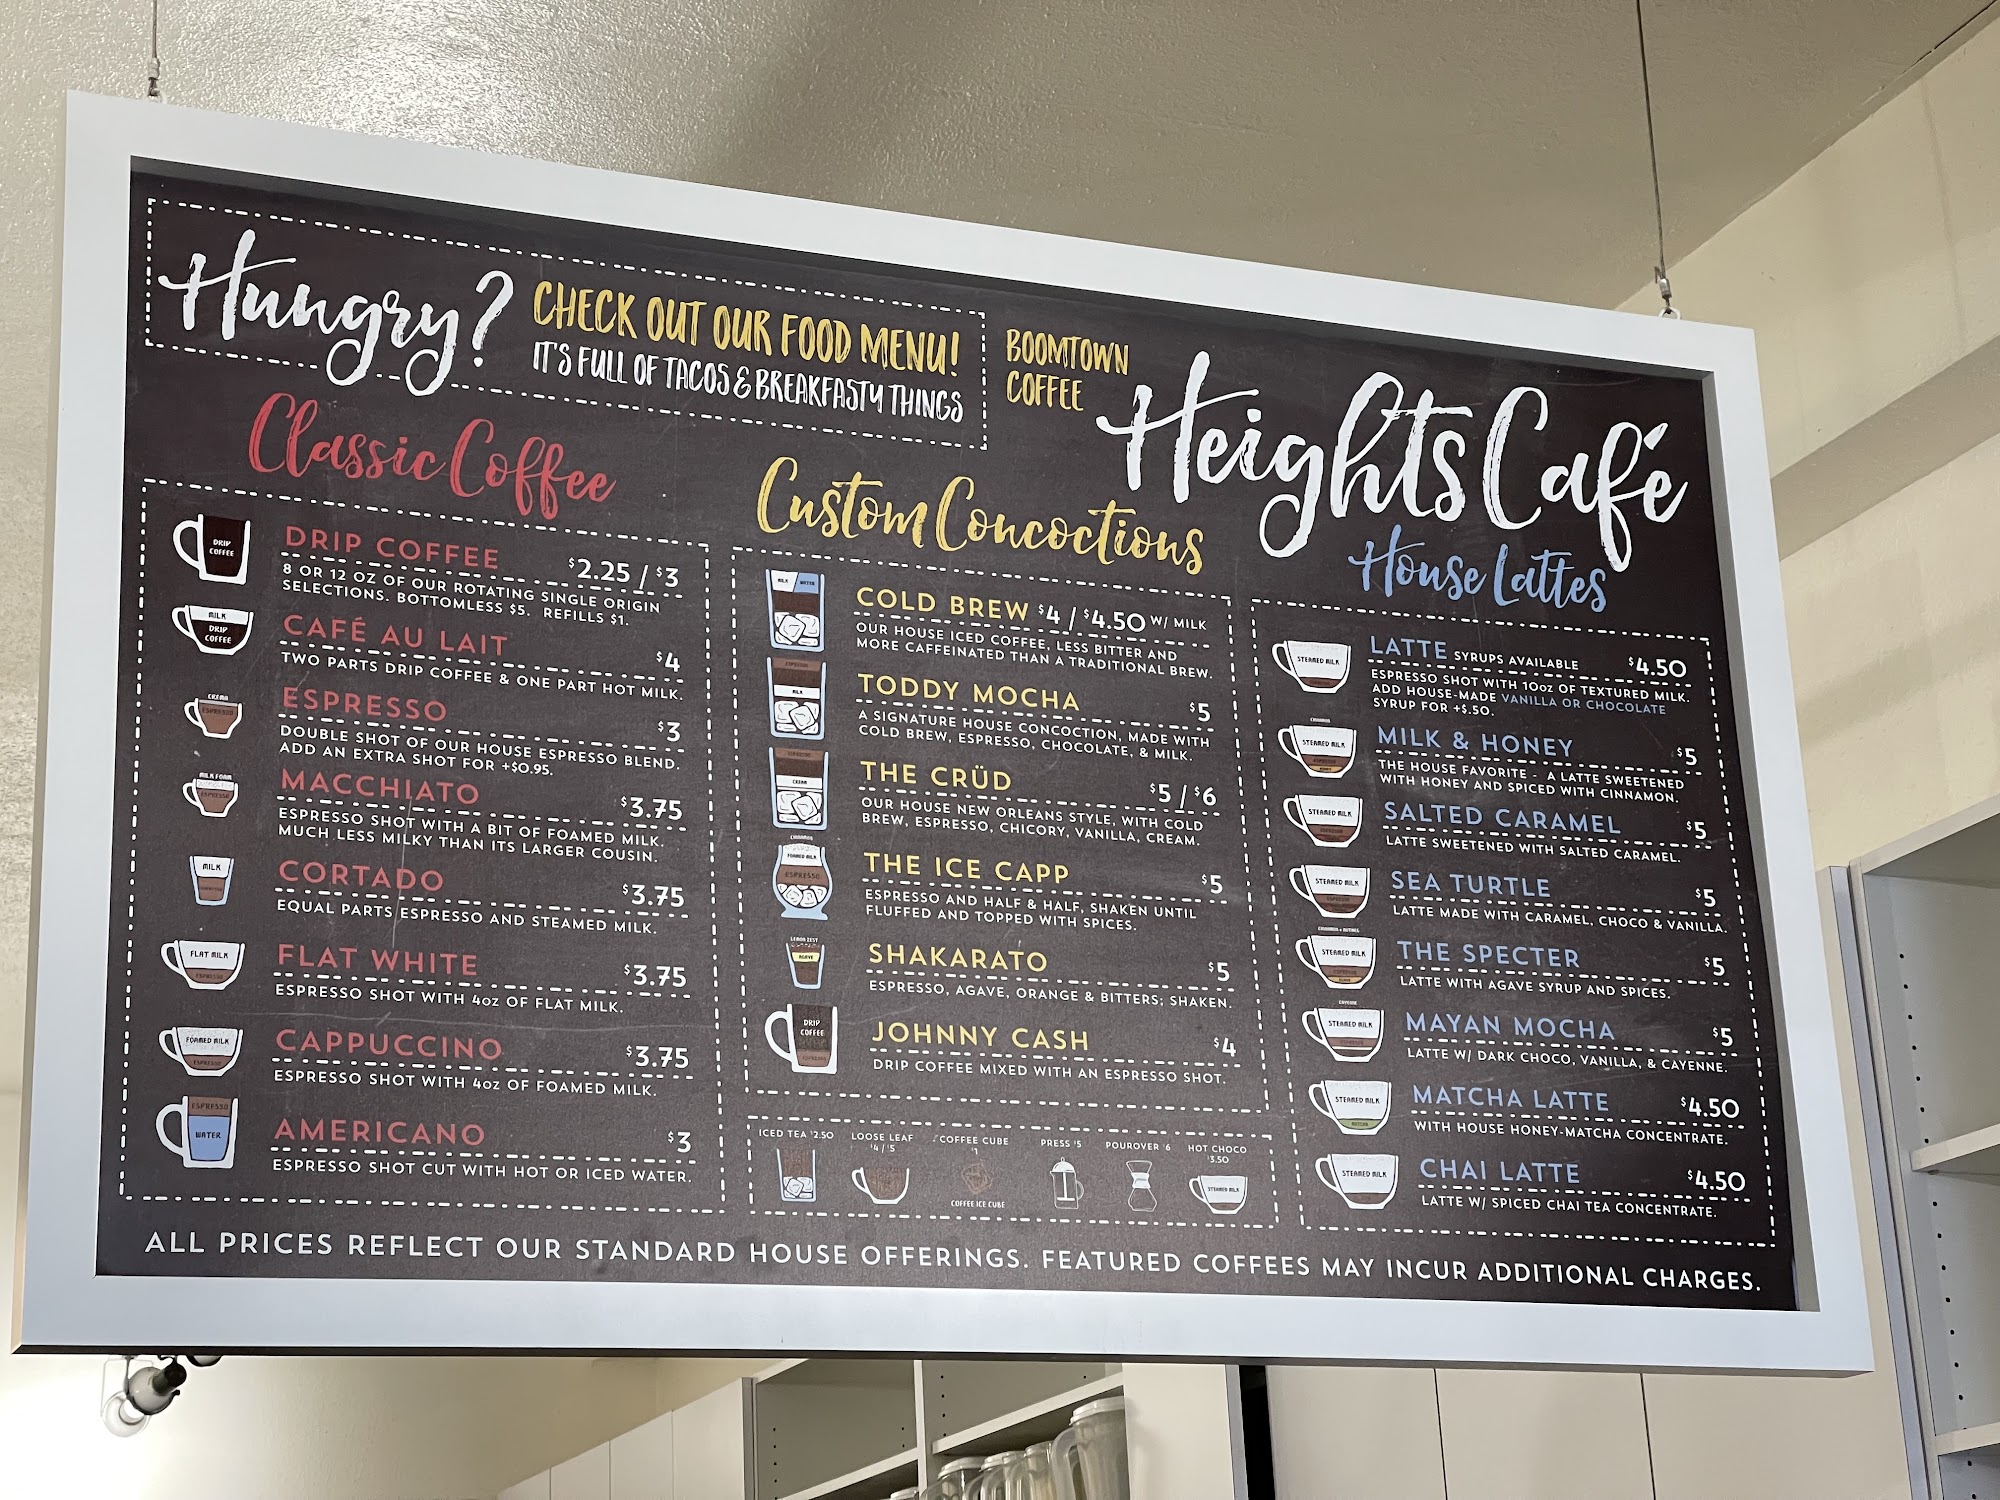 Hungry?
CHECK OUT OUR FOOD MENU!
IT'S FULL OF TACOS & BREAKFASTY THINGS
BOOMTOWN
COFFEE
Heights Café
Classic Coffee
DRIP COFFEE $2.25 / $3
8 OR 12 OZ OF OUR ROTATING SINGLE ORIGIN
SELECTIONS. BOTTOMLESS $5. REFILLS $1.
DRIP
COFFEE
CAFÉ AU LAIT $4
TWO PARTS DRIP COFFEE & ONE PART HOT MILK.
MILK
DRIP
COFFEE
ESPRESSO $3
DOUBLE SHOT OF OUR HOUSE ESPRESSO BLEND.
ADD AN EXTRA SHOT FOR +$0.95.
CREMA
ESPRESSO
MACCHIATO $3.75
ESPRESSO SHOT WITH A BIT OF FOAMED MILK.
MUCH LESS MILKY THAN ITS LARGER COUSIN.
MILK FOAM
ESPRESSO
CORTADO $3.75
EQUAL PARTS ESPRESSO AND STEAMED MILK.
MILK
FLAT WHITE $3.75
ESPRESSO SHOT WITH 4oz OF FLAT MILK.
FLAT MILK
ESPRESSO
CAPPUCCINO $3.75
ESPRESSO SHOT WITH 4oz OF FOAMED MILK.
FOAMED MILK
ESPRESSO
AMERICANO $3
ESPRESSO SHOT CUT WITH HOT OR ICED WATER.
ESPRESSO
WATER
Custom Concoctions
COLD BREW $4 / $4.50 W/ MILK
OUR HOUSE ICED COFFEE, LESS BITTER AND
MORE CAFFEINATED THAN A TRADITIONAL BREW.
MILK WATER
TODDY MOCHA $5
A SIGNATURE HOUSE CONCOCTION, MADE WITH
COLD BREW, ESPRESSO, CHOCOLATE, & MILK.
ESPRESSO
MILK
THE CRÜD $5 / $6
OUR HOUSE NEW ORLEANS STYLE, WITH COLD
BREW, ESPRESSO, CHICORY, VANILLA, CREAM.
ESPRESSO
CREAM
THE ICE CAPP $5
ESPRESSO AND HALF & HALF, SHAKEN UNTIL
FLUFFED AND TOPPED WITH SPICES.
CINNAMON
FOAMED MILK
ESPRESSO
SHAKARATO $5
ESPRESSO, AGAVE, ORANGE & BITTERS; SHAKEN.
LEMON ZEST
AGAVE
JOHNNY CASH $4
DRIP COFFEE MIXED WITH AN ESPRESSO SHOT.
DRIP
COFFEE
ESPRESSO
ICED TEA $2.50
LOOSE LEAF
$4 / $5
COFFEE CUBE
$1
COFFEE ICE CUBE
PRESS $5
POUROVER $6
HOT CHOCO
$3.50
STEAMED MILK
House Lattes
LATTE SYRUPS AVAILABLE $4.50
ESPRESSO SHOT WITH 10oz OF TEXTURED MILK.
ADD HOUSE-MADE VANILLA OR CHOCOLATE
SYRUP FOR +$.50.
STEAMED MILK
MILK & HONEY $5
THE HOUSE FAVORITE - A LATTE SWEETENED
WITH HONEY AND SPICED WITH CINNAMON.
CINNAMON
STEAMED MILK
ESPRESSO
HONEY
SALTED CARAMEL $5
LATTE SWEETENED WITH SALTED CARAMEL.
STEAMED MILK
ESPRESSO
SEA TURTLE $5
LATTE MADE WITH CARAMEL, CHOCO & VANILLA.
STEAMED MILK
ESPRESSO
THE SPECTER $5
LATTE WITH AGAVE SYRUP AND SPICES.
CINNAMON + NUTMEG
STEAMED MILK
ESPRESSO
MAYAN MOCHA $5
LATTE W/ DARK CHOCO, VANILLA, & CAYENNE.
CAYENNE
STEAMED MILK
MATCHA LATTE $4.50
WITH HOUSE HONEY-MATCHA CONCENTRATE.
STEAMED MILK
MATCHA
CHAI LATTE $4.50
LATTE W/ SPICED CHAI TEA CONCENTRATE.
STEAMED MILK
ALL PRICES REFLECT OUR STANDARD HOUSE OFFERINGS. FEATURED COFFEES MAY INCUR ADDITIONAL CHARGES.